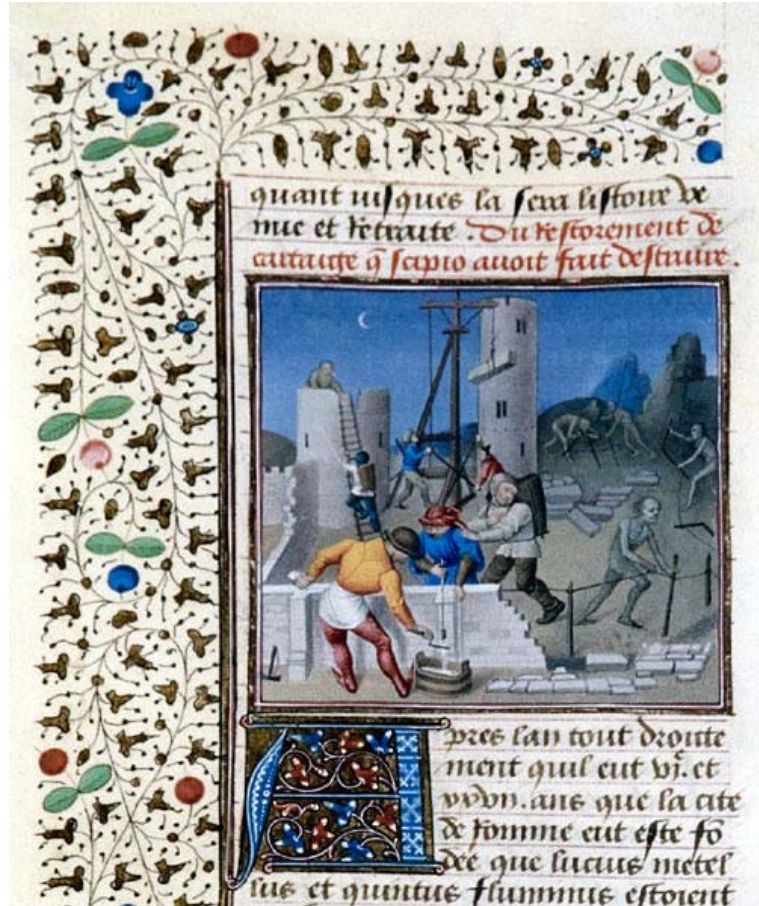 quant iusques la sera listoire ve
nue et retraite . Du restorement de
cartaige q̄ scipio auoit fait destruire .
Apres lan tout droitte
ment quil eut vjͨ. et
xxvii . ans que la cite
de romme eut este fō
dee que lucius metel
lus et quintus flaminius estoient